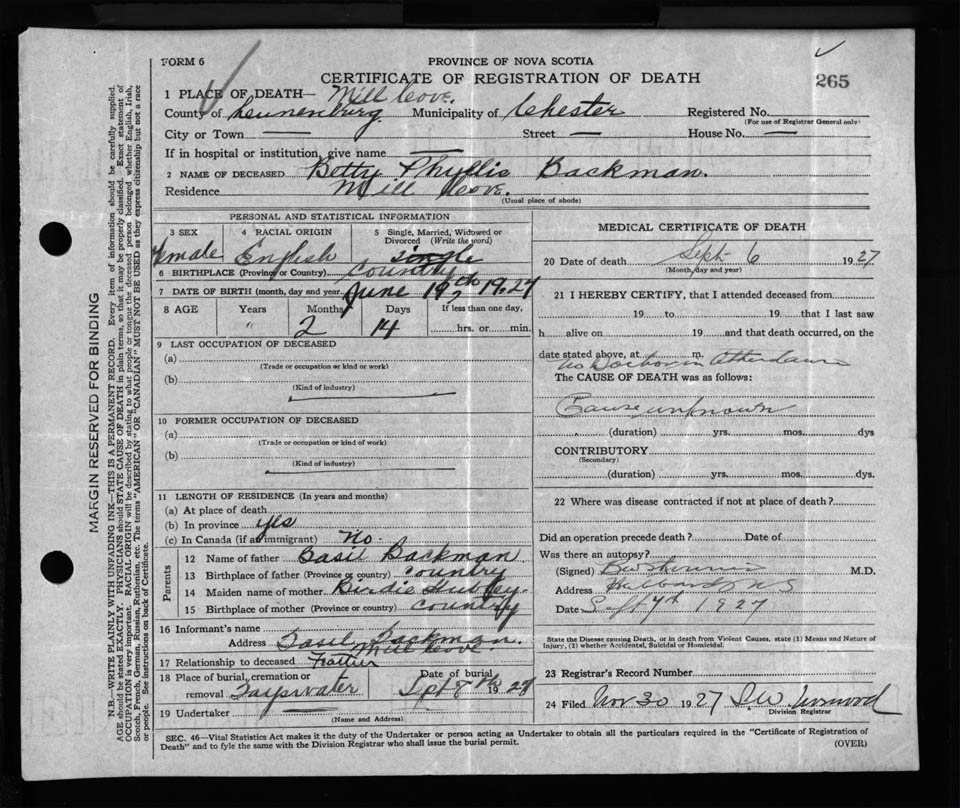 FORM 6
PROVINCE OF NOVA SCOTIA
CERTIFICATE OF REGISTRATION OF DEATH
265
1 PLACE OF DEATH— Mill Cove.
County of Lunenburg Municipality of Chester Registered No.
(For use of Registrar General only)
City or Town — Street — House No. —
If in hospital or institution, give name —
2 NAME OF DECEASED Betty Phyllis Backman.
Residence Mill Cove.
(Usual place of abode)
PERSONAL AND STATISTICAL INFORMATION
3 SEX 4 RACIAL ORIGIN 5 Single, Married, Widowed or Divorced (Write the word)
Female English Single
6 BIRTHPLACE (Province or Country) Country
7 DATE OF BIRTH (month, day and year) June 19th 1927
8 AGE Years Months Days If less than one day,
" 2 14 hrs. or min.
9 LAST OCCUPATION OF DECEASED
(a)
(Trade or occupation or kind or work)
(b)
(Kind of industry)
10 FORMER OCCUPATION OF DECEASED
(a)
(Trade or occupation or kind of work)
(b)
(Kind of industry)
11 LENGTH OF RESIDENCE (In years and months)
(a) At place of death
(b) In province yes
(c) In Canada (if an immigrant) No.
Parents
12 Name of father Basil Backman
13 Birthplace of father (Province or country) Country
14 Maiden name of mother Birdie
15 Birthplace of mother (Province or country) Country
16 Informant's name
Address Basil Backman.
Mill Cove.
17 Relationship to deceased Father
18 Place of burial, cremation or removal Date of burial
Sept 8th 1927
19 Undertaker
(Name and Address)
MEDICAL CERTIFICATE OF DEATH
20 Date of death Sept 6 1927
(Month, day and year)
21 I HEREBY CERTIFY, that I attended deceased from
19 to 19 that I last saw
h alive on 19 and that death occurred, on the
date stated above, at m.
No Doctor in attendance
The CAUSE OF DEATH was as follows:
Cause unknown
(duration) yrs. mos. dys
CONTRIBUTORY
(Secondary)
(duration) yrs. mos. dys.
22 Where was disease contracted if not at place of death?
Did an operation precede death? Date of
Was there an autopsy?
(Signed) M.D.
Address Hubbards N S
Date Sept 7th 1927
State the Disease causing Death, or in death from Violent Causes, state (1) Means and Nature of
Injury, (2) whether Accidental, Suicidal or Homicidal.
23 Registrar's Record Number
24 Filed Nov 30 1927
Division Registrar
SEC. 46—Vital Statistics Act makes it the duty of the Undertaker or person acting as Undertaker to obtain all the particulars required in the "Certificate of Registration of
Death" and to fyle the same with the Division Registrar who shall issue the burial permit.
(OVER)
MARGIN RESERVED FOR BINDING
N.B.—WRITE PLAINLY WITH UNFADING INK—THIS IS A PERMANENT RECORD. Every item of information should be carefully supplied.
AGE should be stated EXACTLY. PHYSICIANS should STATE CAUSE OF DEATH in plain terms, so that it may be properly classified. Exact statement of
OCCUPATION is very important. RACIAL ORIGIN will be described by stating to what people or tongue the deceased person belonged whether English, Irish,
Scotch, French, German, Russian, Ruthenian, etc. The terms "AMERICAN" OR "CANADIAN" MUST NOT BE USED as they express citizenship but not a race
or people. See instructions on back of Certificate.